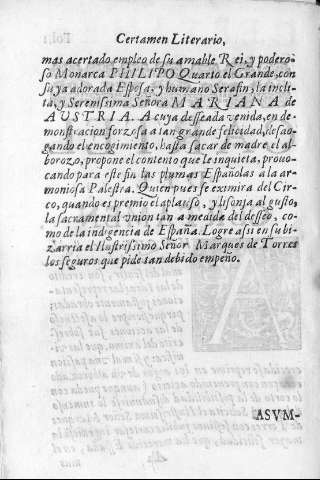 Certamen Literario,
mas acertado empleo de su amable Rei, y podero-
so Monarca PHILIPO Quarto el Grande, con
su ya adorada Esposa, y humano Serafin, la incli-
ta, y Serenissima Señora MARIANA de
AVSTRIA. A cuya desseada venida, en de-
monstracion forzosa a tan grande felicidad, desao-
gando el encogimiento, hasta sacar de madre el al-
borozo, propone el contento que le inquieta, prouo-
cando para este fin las plumas Españolas a la ar-
moniosa Palestra. Quien pues se eximira del Cir-
co, quando es premio el aplauso, y lisonja al gusto,
la sacramental vnion tan a medida del desseo, co-
mo de la indigencia de España. Logre assi en su bi-
zarria el Ilustrissimo Señor Marques de Torres
los seguros que pide tan debido empeño.
ASVM-